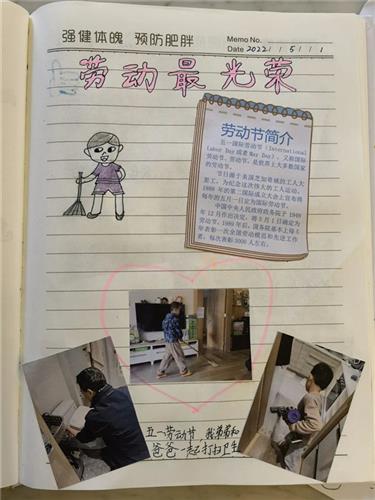 强健体魄 预防肥胖
Memo No.
Date 2022 / 5 / 1
劳动最光荣
劳动节简介
五一国际劳动节（International
Labor Day或者May Day），又称国际
劳动节、劳动节，是世界上大多数国家
的劳动节。
节日源于美国芝加哥城的工人大
罢工，为纪念这次伟大的工人运动，
1889 年的第二国际成立大会上宣布将
每年的五月一日定为国际劳动节。
中国中央人民政府政务院于 1949
年 12 月作出决定，将 5 月 1 日确定为
劳动节。1989 年后，国务院基本上每 5
年表彰一次全国劳动模范和先进工作
者，每次表彰 3000 人左右。
五一劳动节 我弟弟和
爸爸一起打扫卫生